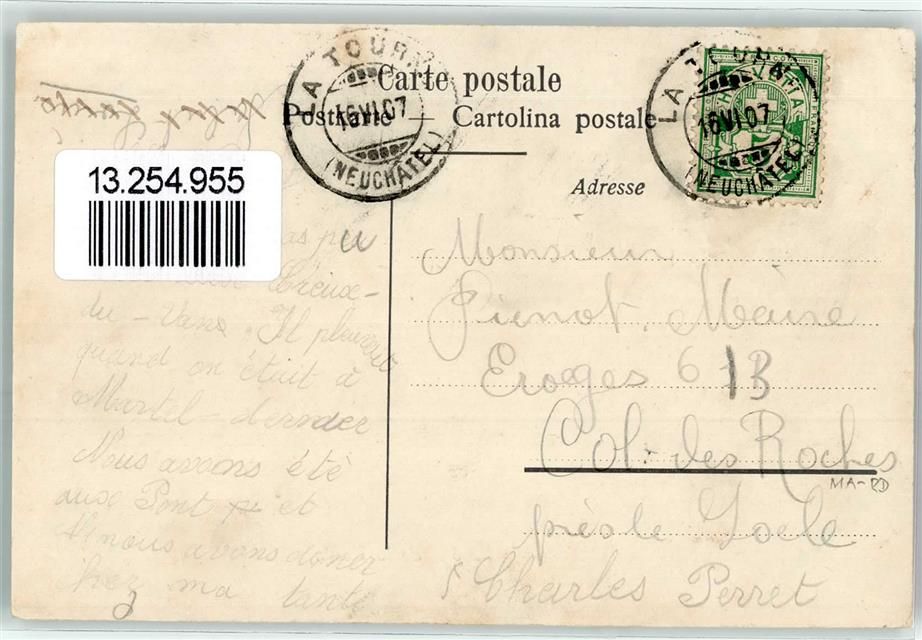 LA TOURNE
16 VI 07
(NEUCHÂTEL)
Carte postale
Postkarte — Cartolina postale
LA TOURNE
16 VI 07
(NEUCHÂTEL)
HELVETIA
Adresse
13.254.955
pas pu
Creux-
du-Vans. Il pleuvait
quand on était à
Martel-dernier
Nous avons été
aux Pont et
nous avons dîner
chez ma tante
Monsieur
Pienot. Maire
6 13
Col-des-Roches
MA-RD
près le Locle
Charles Perret